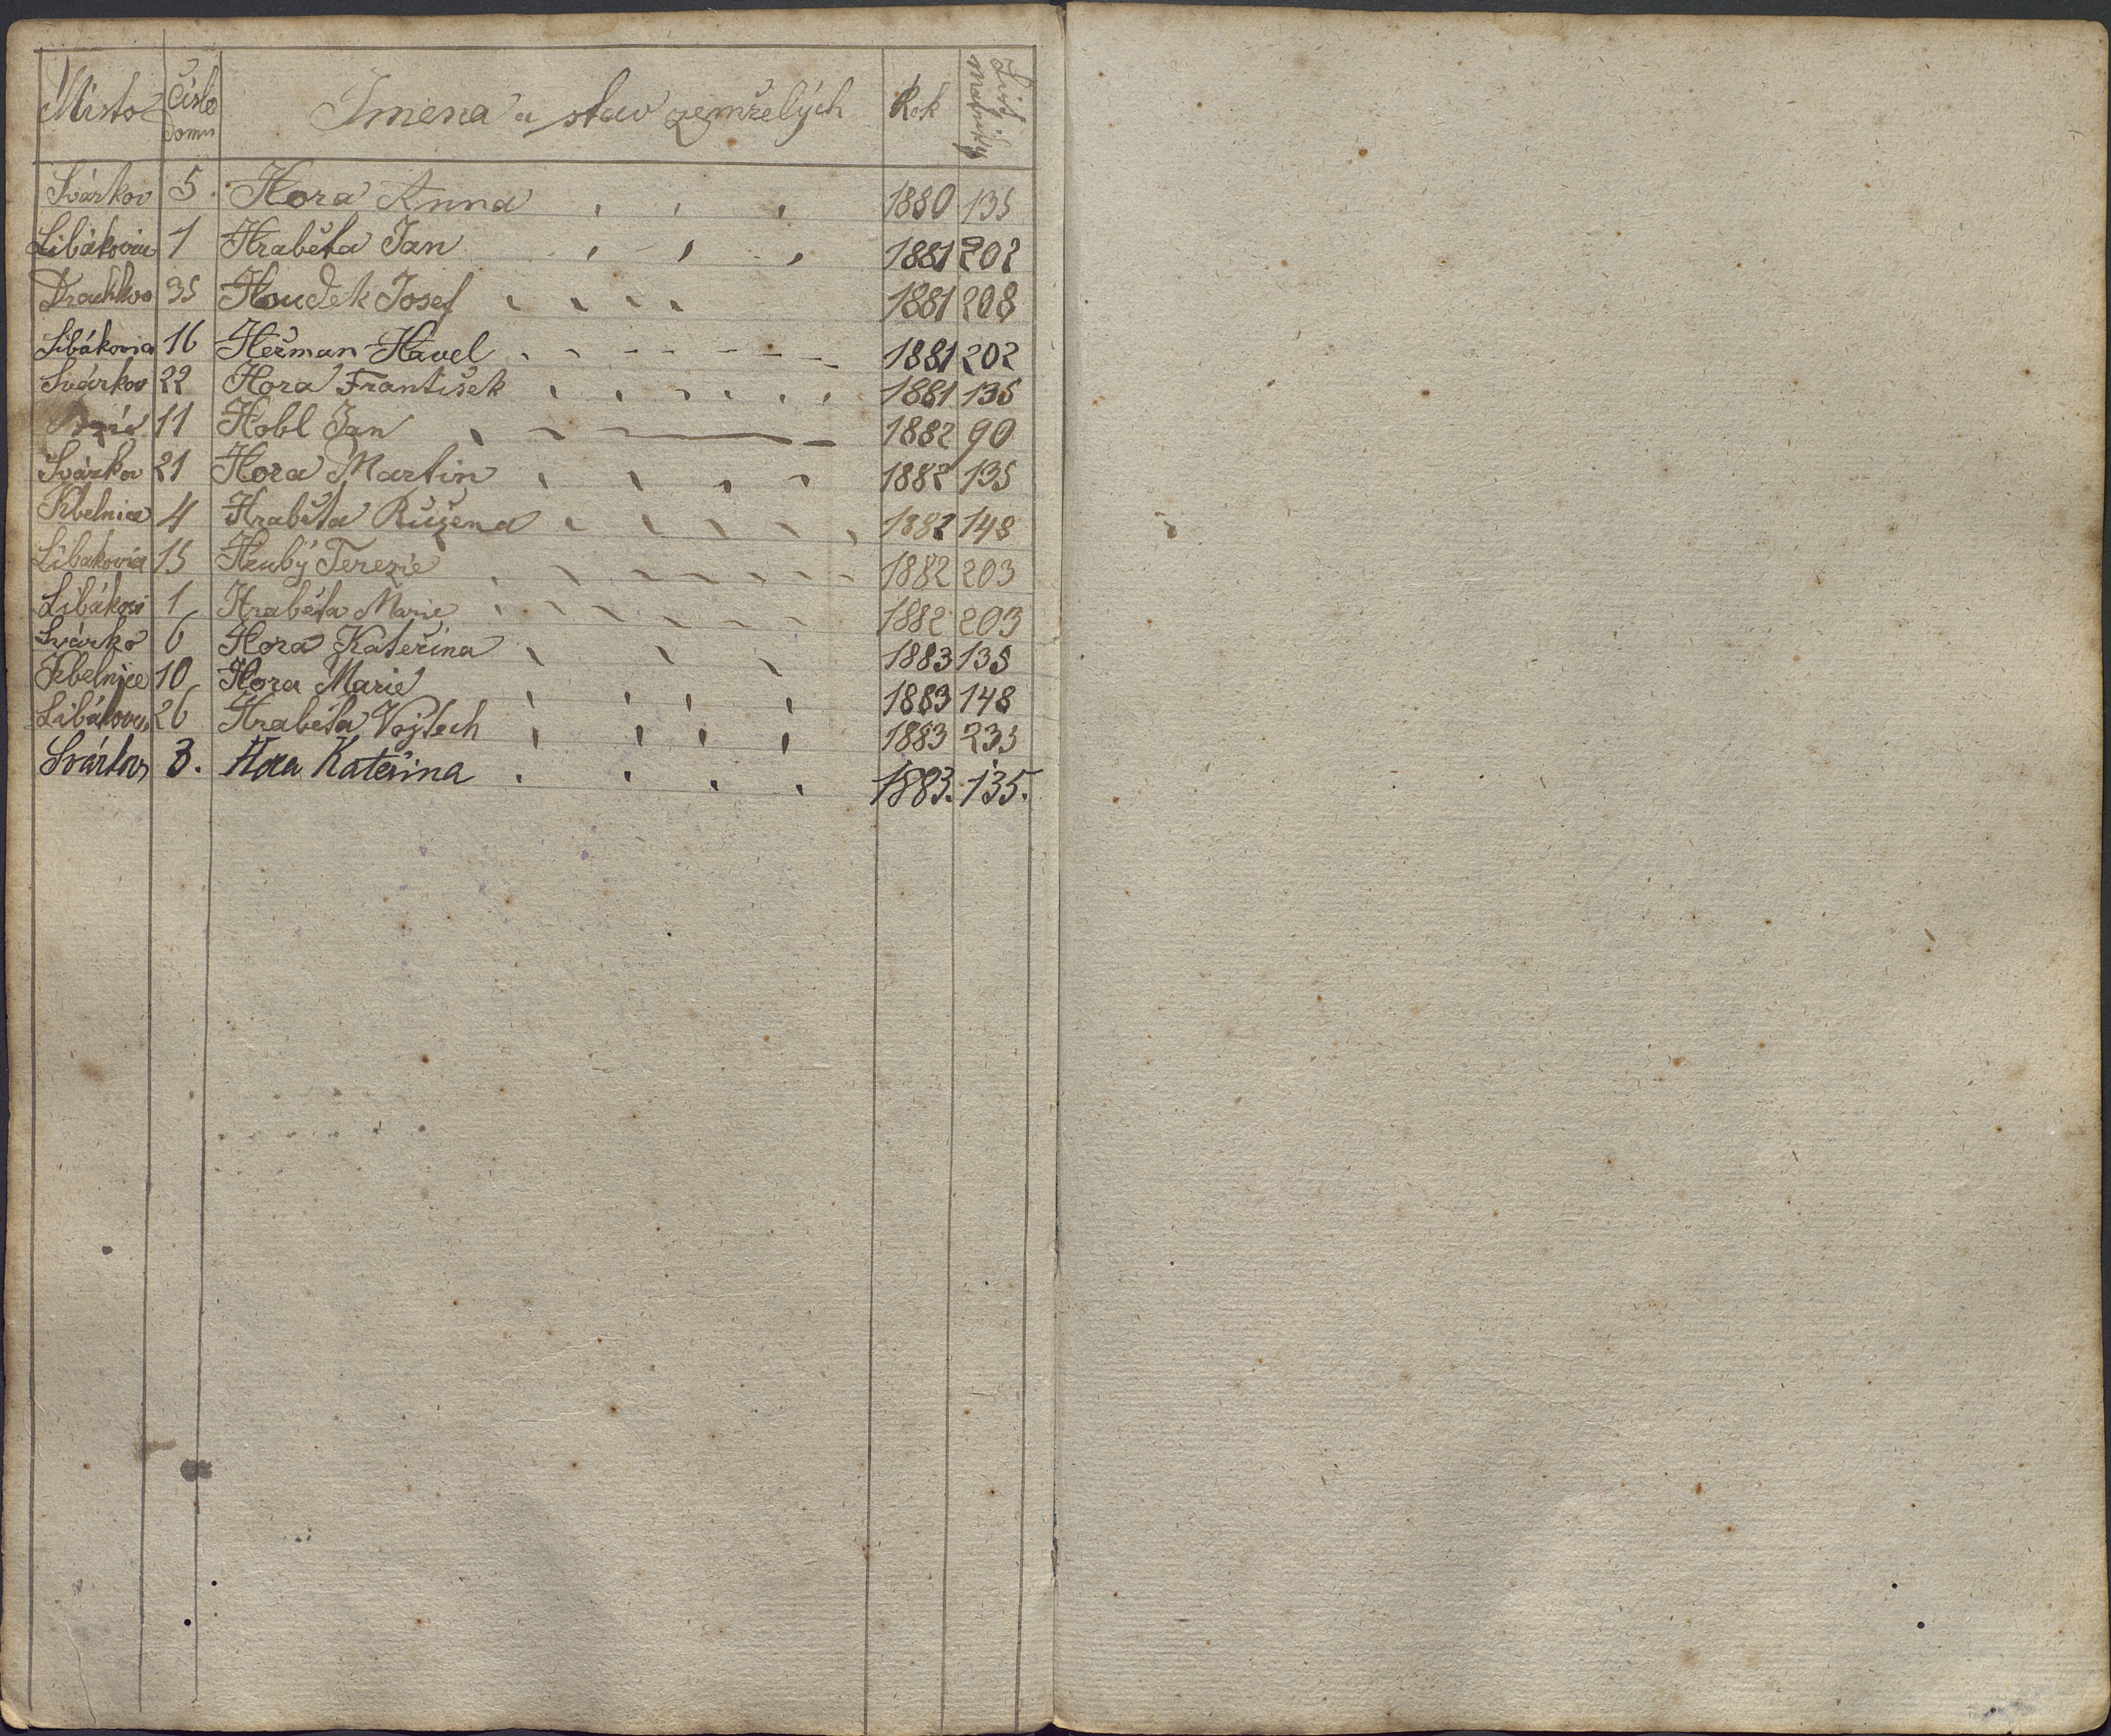 Místo Číslo domu Jmena a stav zemřelých Rok List matriky
Svárkov 5. Hora Anna 1880 135
Libákovic 1 Hraběta Jan 1881 202
35 Houdek Josef 1881 208
Libákovic 16 Heřman Havel 1881 202
Svárkov 22 Hora František 1881 135
11 Hobl Jan 1882 90
Svárkov 21 Hora Martin 1882 135
Kbelnice 4 Hraběta Růžena 1882 148
Libakovic 15 Hrubý Terezie 1882 203
Libákovi 1 Hraběta Marie 1882 203
Svárko 6 Hora Kateřina 1883 135
Kbelnice 10 Hora Marie 1883 148
Libákovic 26 Hraběta Vojtech 1883 235
Svárkov 3. Hora Kateřina 1883. 135.